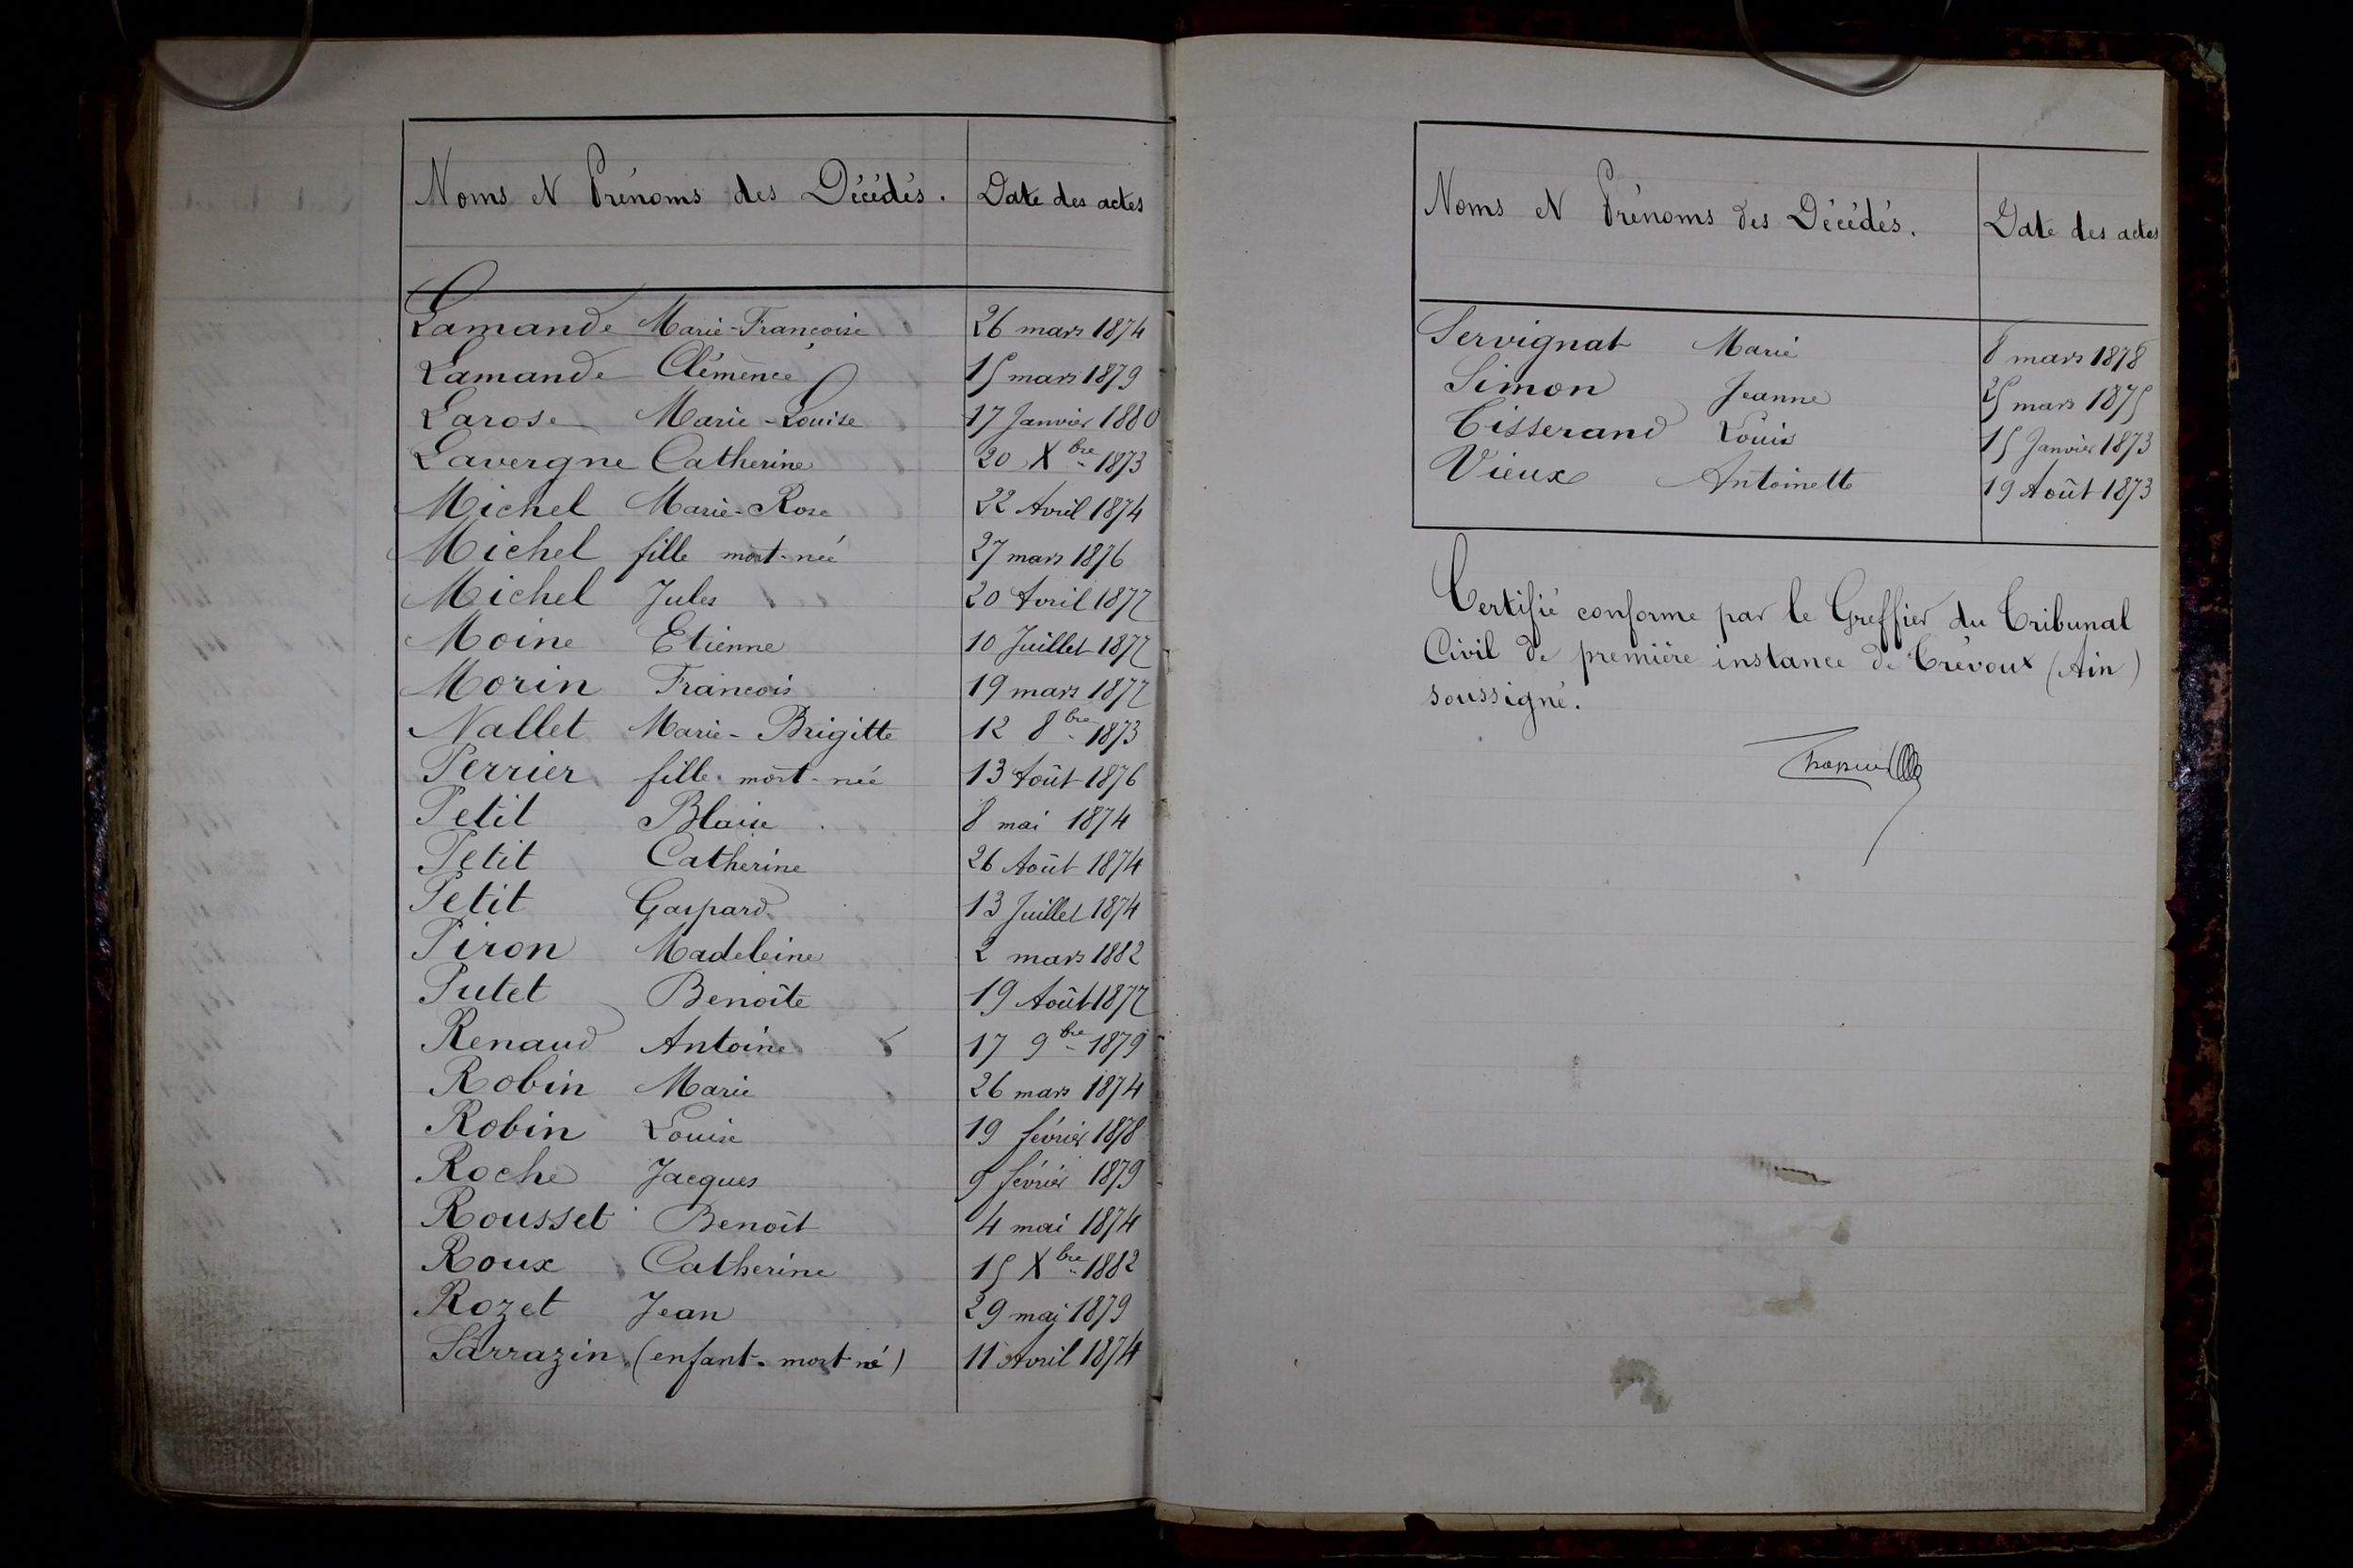 Noms et Prénoms des Décédés. Date des actes
Lamande Marie-Françoise 26 mars 1874
Lamande Clémence 15 mars 1879
Larose Marie-Louise 17 Janvier 1880
Lavergne Catherine 20 Xbre 1873
Michel Marie-Rose 22 Avril 1874
Michel fille mort-née 27 mars 1876
Michel Jules 20 Avril 1877
Moine Etienne 10 Juillet 1877
Morin François 19 mars 1877
Nallet Marie-Brigitte 12 8bre 1873
Perrier fille mort-née 13 Août 1876
Petit Blaise 8 mai 1874
Petit Catherine 26 Août 1874
Petit Gaspard 13 Juillet 1874
Piron Madeleine 2 mars 1882
Putet Benoîte 19 Août 1877
Renaud Antoine 17 9bre 1879
Robin Marie 26 mars 1874
Robin Louise 19 février 1878
Roche Jacques 9 février 1879
Rousset Benoît 4 mai 1874
Roux Catherine 15 Xbre 1882
Rozet Jean 29 mai 1879
Sarrazin (enfant mort né) 11 Avril 1874
Noms et Prénoms des Décédés. Date des actes
Servignat Marie 8 mars 1878
Simon Jeanne 25 mars 1875
Tisserand Louis 15 Janvier 1873
Vieux Antoinette 19 Août 1873
Certifié conforme par le Greffier du Tribunal
Civil de première instance de Trévoux (Ain)
soussigné.